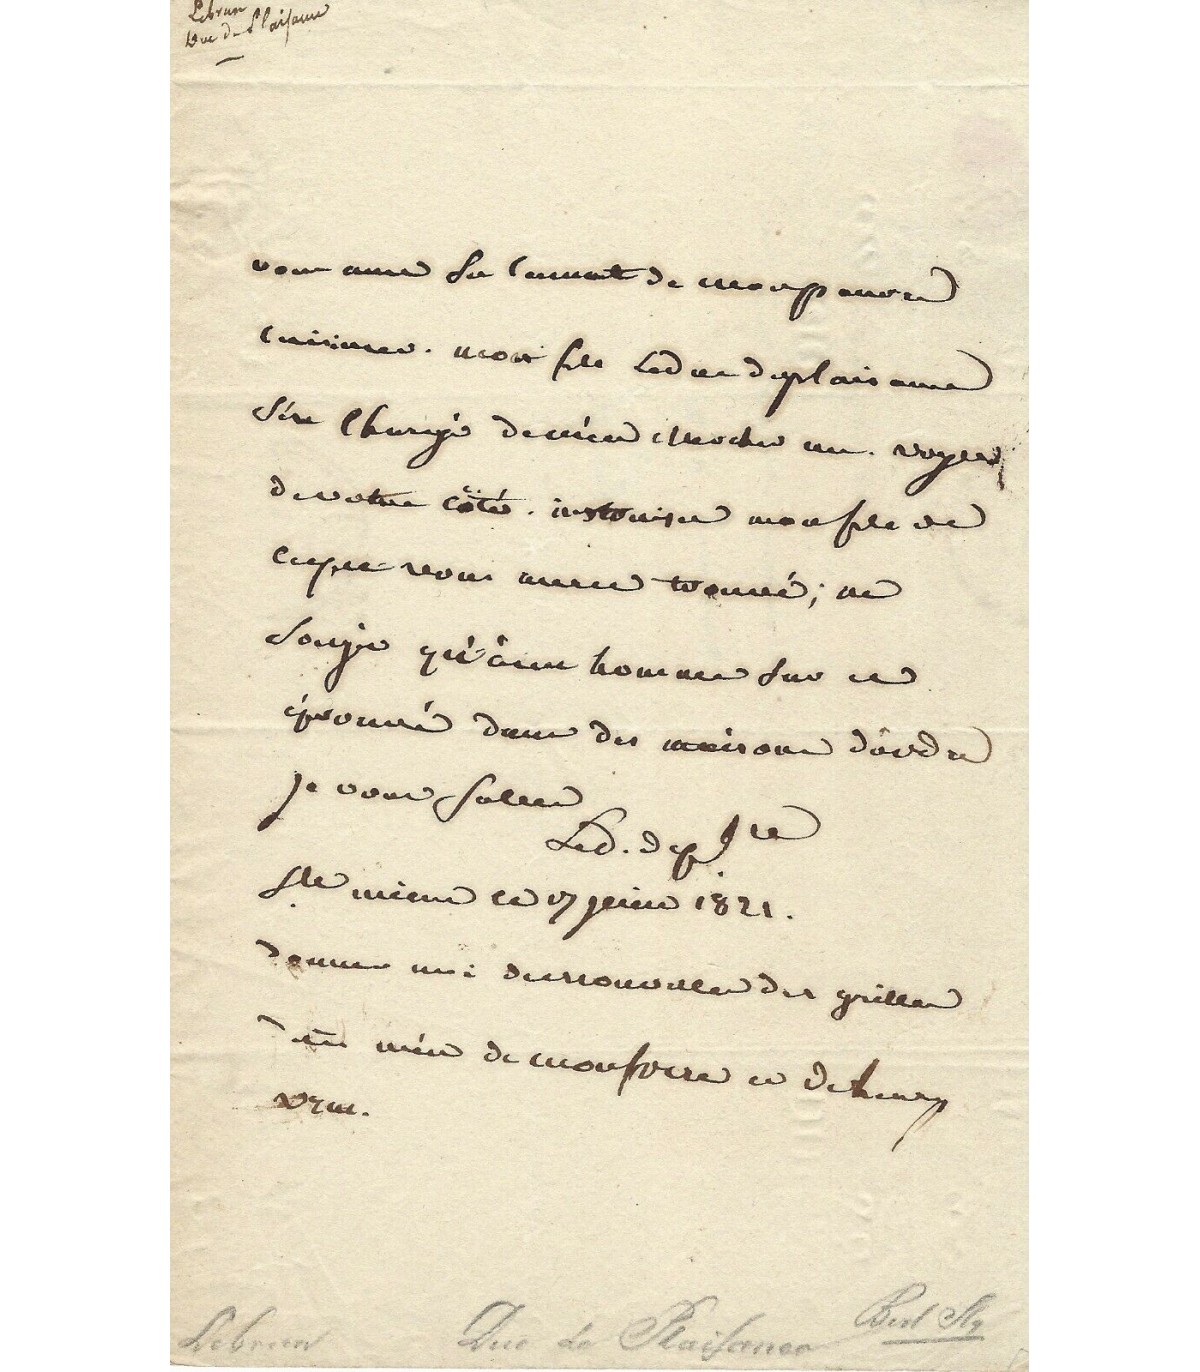 Lebrun
Duc de Plaisance
vous avez su la mort de mon pauvre
cuisinier. mon fils le duc de plaisance
s'est chargé de m'en chercher un. voyez
de votre côté. instruisez mon fils de
ce que vous aurez trouvé; ne
songez qu'à un homme sur et
éprouvé dans des maisons d'ordre
je vous salue
Le d. de pl.ce
Ste mesme ce 17 juin 1821.
donnez moi des nouvelles des grilles
de mon frere et de henry
Lebrun Duc de Plaisance